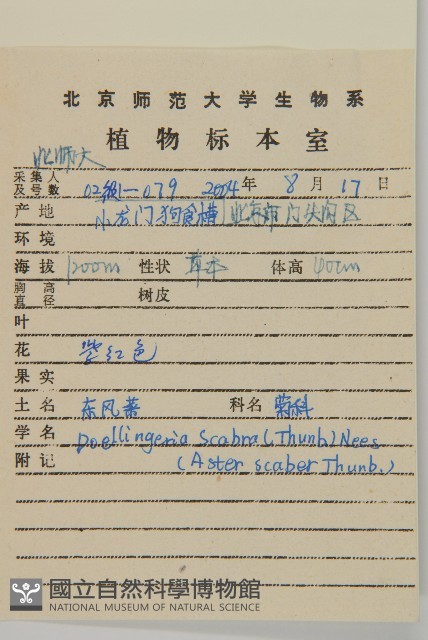 北京师范大学生物系
植物标本室
北师大
采集人及号数 02级1-079 2004年 8月17日
产地 小龙门狗食槽 北京市门头沟区
环境
海拔 1200m 性状 草本 体高 40cm
胸高直径 树皮
叶
花 紫红色
果实
土名 东风菜 科名 菊科
学名 Doellingeria scabra (Thunb.) Nees
附记 (Aster scaber Thunb.)
國立自然科學博物館
NATIONAL MUSEUM OF NATURAL SCIENCE